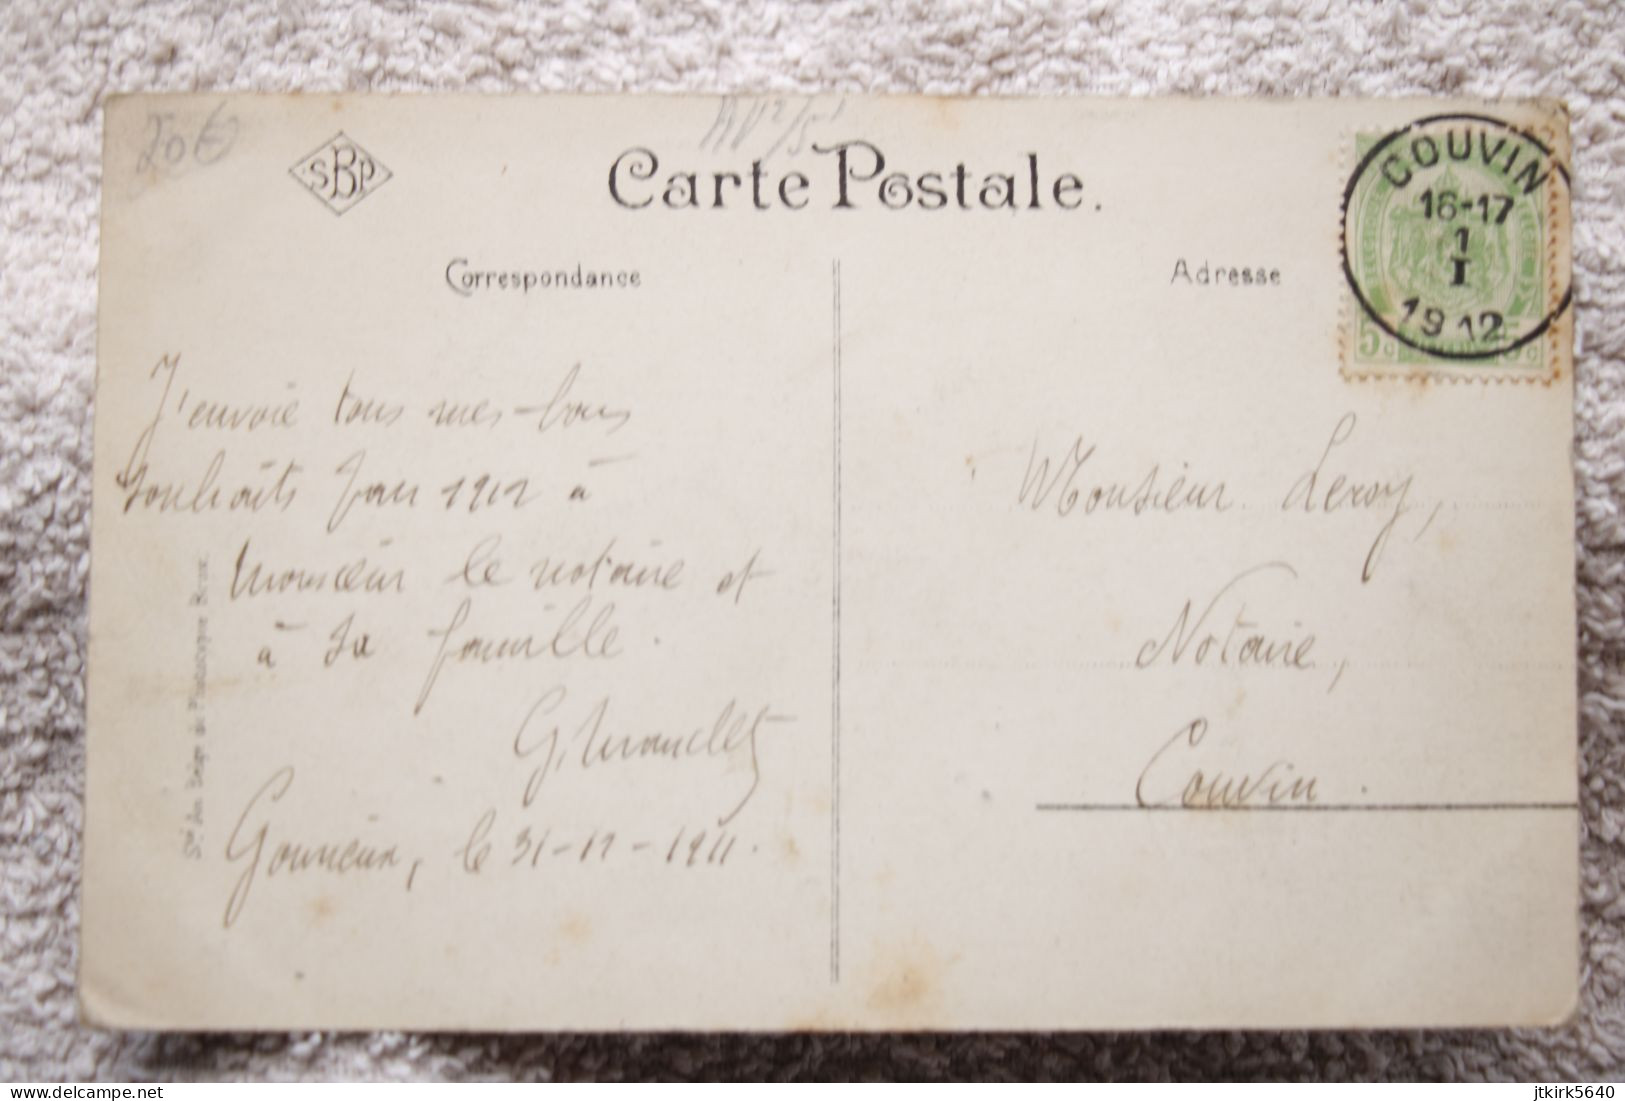 20€
SBP
Carte Postale.
Correspondance
Adresse
COUVIN
16-17
1
I
1912
5c 5c
J'envoie tous mes bons
souhaits pour 1912 à
Monsieur le notaire et
à sa famille.
Gonrieux, le 31-12-1911.
Monsieur Leroy,
Notaire,
Couvin.
Sté An. Belge de Phototypie Brux.
delcampe.net
jtkirk5640